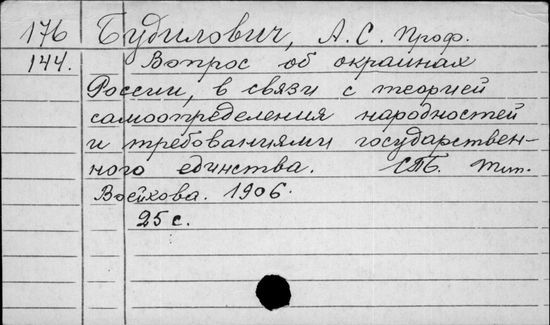 176 Будилович, А. С. Проф.
144. Вопрос об окраинах
России, в связи с теорией
самоопределения народностей
и требованиями государствен-
ного единства. СПБ. Тип.
Воейкова. 1906.
25 с.